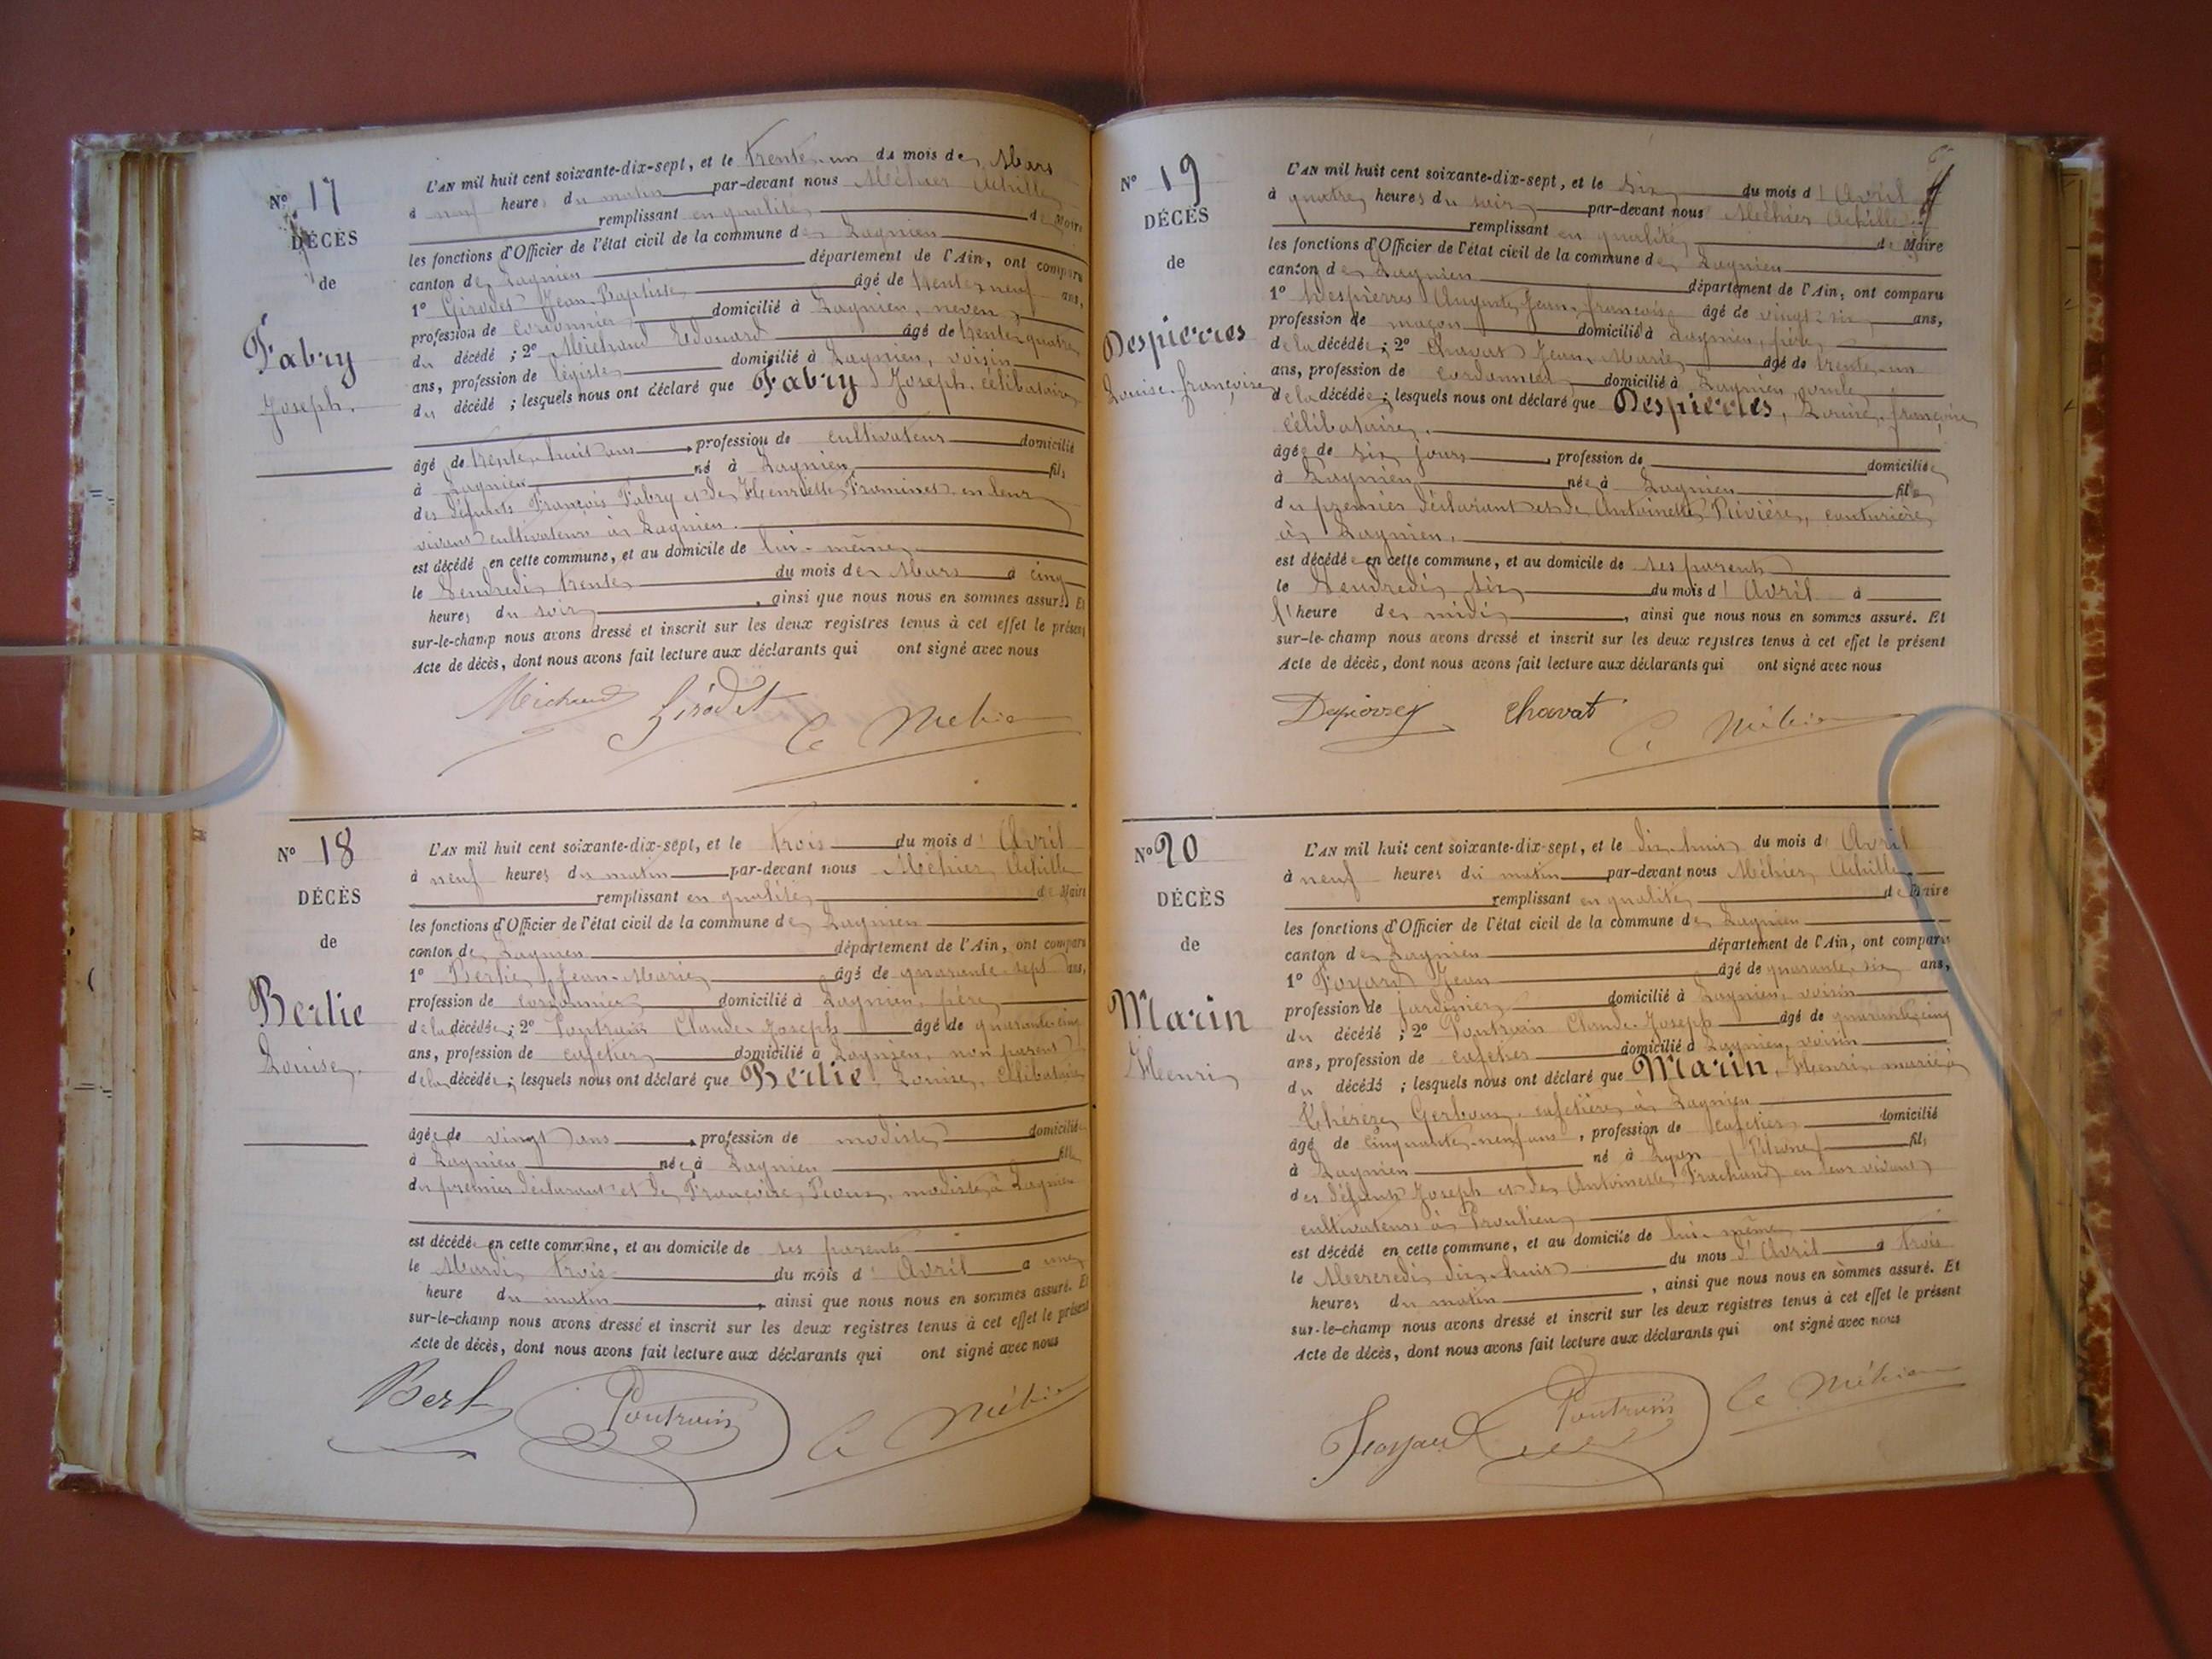 N° 17
DÉCÈS
de
Fabry
Joseph.
L'AN mil huit cent soixante-dix-sept, et le trente-un du mois de Mars
à neuf heures du matin par-devant nous Méhier Achille
remplissant en qualité de Maire
les fonctions d'Officier de l'état civil de la commune de Lagnieu
canton de Lagnieu département de l'Ain, ont comparu
1° Girodet Jean-Baptiste âgé de trente-neuf ans,
profession de cordonnier domicilié à Lagnieu, neveu
du décédé ; 2° Michaud Edouard âgé de trente-quatre
ans, profession de légiste domicilié à Lagnieu, voisin
du décédé ; lesquels nous ont déclaré que Fabry Joseph, célibataire
âgé de trente-huit ans, profession de cultivateur domicilié
à Lagnieu né à Lagnieu fils
des défunts François Fabry et de Henriette en leur
vivant cultivateurs à Lagnieu.
est décédé en cette commune, et au domicile de lui-même
le Vendredi trente du mois de Mars à cinq
heures du soir, ainsi que nous nous en sommes assuré. Et
sur-le-champ nous avons dressé et inscrit sur les deux registres tenus à cet effet le présent
Acte de décès, dont nous avons fait lecture aux déclarants qui ont signé avec nous
Michaud Girodet A Méhier
N° 18
DÉCÈS
de
Berlie
Louise.
L'AN mil huit cent soixante-dix-sept, et le trois du mois d'Avril
à neuf heures du matin par-devant nous Méhier Achille
remplissant en qualité de Maire
les fonctions d'Officier de l'état civil de la commune de Lagnieu
canton de Lagnieu département de l'Ain, ont comparu
1° Berlie Jean-Marie âgé de quarante-sept ans,
profession de cordonnier domicilié à Lagnieu, père
de la décédée ; 2° Poutrain Claude-Joseph âgé de quarante-cinq
ans, profession de cafetier domicilié à Lagnieu, non parent
de la décédée ; lesquels nous ont déclaré que Berlie Louise, célibataire
âgée de vingt ans, profession de modiste domiciliée
à Lagnieu née à Lagnieu fille
du premier déclarant et de Françoise modiste à Lagnieu
est décédée en cette commune, et au domicile de ses parents
le Mardi trois du mois d'Avril à une
heure du matin, ainsi que nous nous en sommes assuré. Et
sur-le-champ nous avons dressé et inscrit sur les deux registres tenus à cet effet le présent
Acte de décès, dont nous avons fait lecture aux déclarants qui ont signé avec nous
Berl Poutrain A Méhier
N° 19
DÉCÈS
de
Despierres
Louise-françoise
L'AN mil huit cent soixante-dix-sept, et le six du mois d'Avril
à quatre heures du soir par-devant nous Méhier Achille
remplissant en qualité de Maire
les fonctions d'Officier de l'état civil de la commune de Lagnieu
canton de Lagnieu département de l'Ain, ont comparu
1° Despierres Auguste Jean-françois âgé de vingt-six ans,
profession de maçon domicilié à Lagnieu, père
de la décédée ; 2° Chavat Jean-Marie âgé de trente-un
ans, profession de cordonnier domicilié à Lagnieu, oncle
de la décédée ; lesquels nous ont déclaré que Despierres, Louise-françoise
célibataire.
âgée de six jours, profession de domiciliée
à Lagnieu née à Lagnieu fille
du premier déclarant et de Antoinette Rivière, couturière
à Lagnieu.
est décédée en cette commune, et au domicile de ses parents
le Vendredi six du mois d'Avril à
l'heure de midi, ainsi que nous nous en sommes assuré. Et
sur-le-champ nous avons dressé et inscrit sur les deux registres tenus à cet effet le présent
Acte de décès, dont nous avons fait lecture aux déclarants qui ont signé avec nous
Despierres Chavat A Méhier
N° 20
DÉCÈS
de
Marin
Henri
L'AN mil huit cent soixante-dix-sept, et le dix-huit du mois d'Avril
à neuf heures du matin par-devant nous Méhier Achille
remplissant en qualité de Maire
les fonctions d'Officier de l'état civil de la commune de Lagnieu
canton de Lagnieu département de l'Ain, ont comparu
1° Foyard Jean âgé de quarante-six ans,
profession de jardinier domicilié à Lagnieu, voisin
du décédé ; 2° Poutrain Claude-Joseph âgé de quarante-cinq
ans, profession de cafetier domicilié à Lagnieu, voisin
du décédé ; lesquels nous ont déclaré que Marin, Henri, marié à
Thérèze cafetière à Lagnieu
âgé de cinquante-neuf ans, profession de cafetier domicilié
à Lagnieu né à Lyon (Rhône) fils
des défunts Joseph et de Antoinette en leur vivant
cultivateurs à Proulieu
est décédé en cette commune, et au domicile de lui-même
le Mercredi dix-huit du mois d'Avril à trois
heures du matin, ainsi que nous nous en sommes assuré. Et
sur-le-champ nous avons dressé et inscrit sur les deux registres tenus à cet effet le présent
Acte de décès, dont nous avons fait lecture aux déclarants qui ont signé avec nous
Poutrain A Méhier